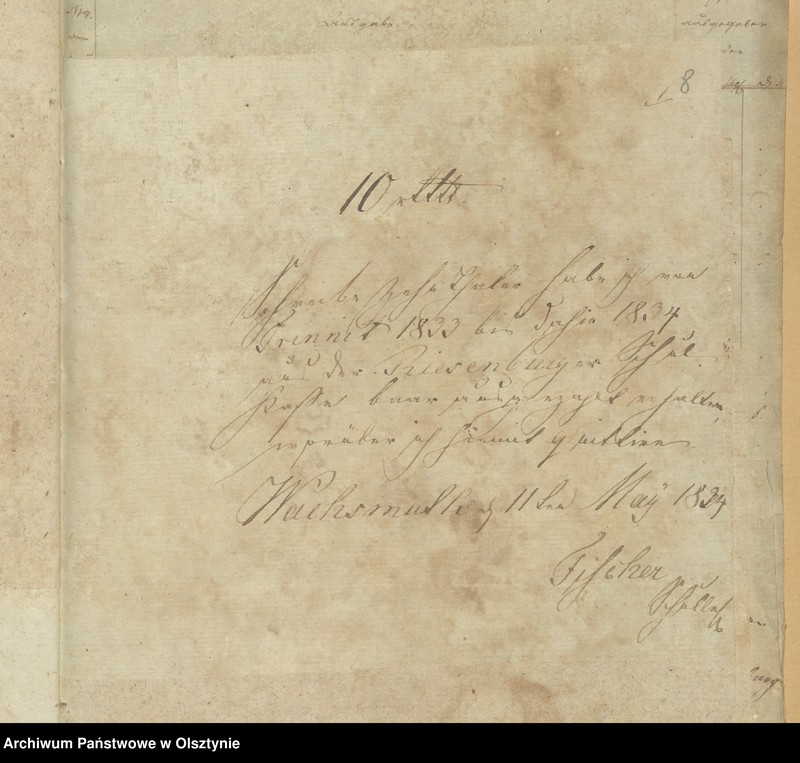 Ausgabe.
ausgegeben
den
18
10 rttt
Schreibe Zehn Thaler habe ich von
Trinnit 1833 bis dahin 1834
aus der Riesenburger Schul
Kasse baar ausgezahlt erhalten,
worüber ich hiemit quittire
Wachsmuth d 11ten May 1834
Fischer
Schulleh
Archiwum Państwowe w Olsztynie